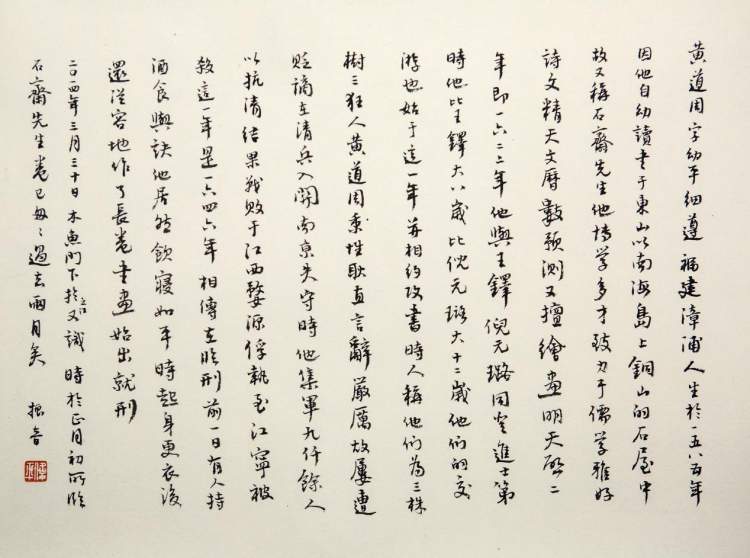 黄道周字幼平細遵福建漳浦人生於一五八五年
因他自幼讀書于東山以南海島上銅山的石屋中
故又稱石齋先生他博學多才致力于儒學雅好
詩文精天文曆數預測又擅繪畫明天啟二
年即一六二二年他與王鐸倪元璐同登進士第
時他比王鐸大八歲比倪元璐大十二歲他們的交
游也始于這一年并相約改書時人稱他們為三株
樹三狂人黄道周秉性耿直言辭嚴厲故屢遭
貶謫在清兵入關南京失守時他集軍九仟餘人
以抗清結果戰敗于江西婺源俘執至江寧被
殺這一年是一六四六年相傳在臨刑前一日有人持
酒食與訣他居然飲寢如平時起身更衣後
還從容地作了長卷書畫始出就刑
二〇一四年三月三十日木魚門下於上江又識時於正月初所臨
石齋先生卷已匆匆過去兩月矣 振音